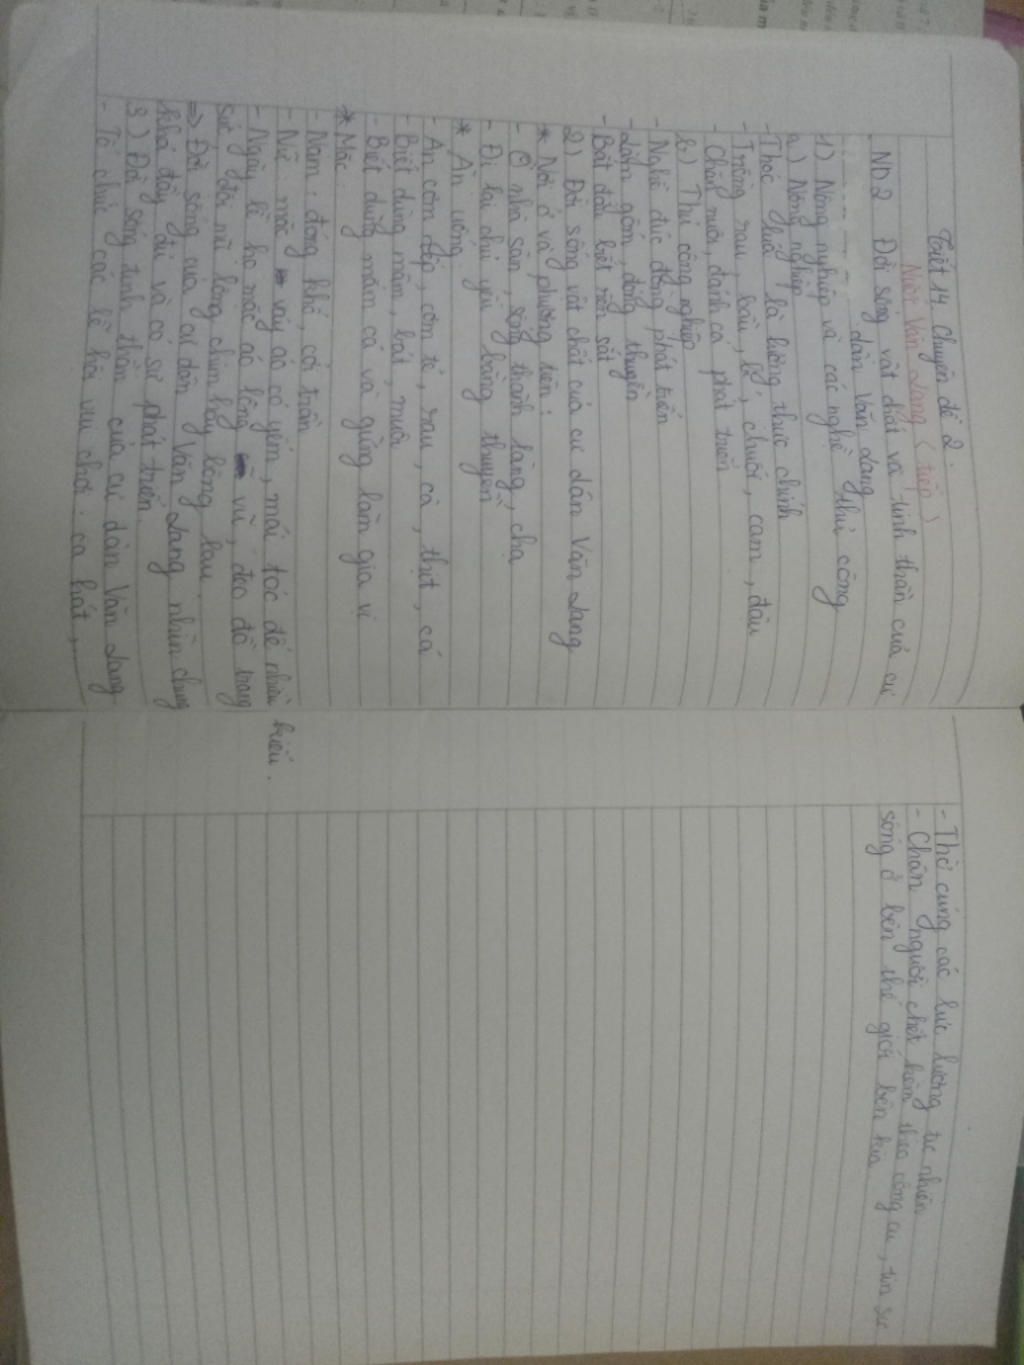 Tiết 14 Chuyên đề 2.
Nước Văn Lang (tiếp)
ND2 Đời sống vật chất và tinh thần của cư
dân Văn Lang
1) Nông nghiệp và các nghề thủ công
a) Nông nghiệp
- Thóc lúa là lương thực chính
- Trồng rau, bầu, bí, chuối, cam, đậu
- Chăn nuôi, đánh cá phát triển
b) Thủ công nghiệp
- Nghề đúc đồng phát triển
- Làm gốm, đóng thuyền
- Bắt đầu biết rèn sắt
2) Đời sống vật chất của cư dân Văn Lang
* Nơi ở và phương tiện:
- Ở nhà sàn, sống thành làng, chạ
- Đi lại chủ yếu bằng thuyền
* Ăn uống
- Ăn cơm nếp, cơm tẻ, rau, cà, thịt, cá
- Biết dùng mâm, bát, muôi
- Biết dùng mắm cá và gừng làm gia vị
* Mặc:
- Nam: đóng khố, cởi trần
- Nữ mặc váy áo có yếm, mái tóc để nhiều kiểu.
- Ngày lễ họ mặc áo lông vũ, đeo đồ trang
sức, đội mũ lông chim hay bông lau
=> Đời sống của cư dân Văn Lang nhìn chung
khá đầy đủ và có sự phát triển.
3) Đời sống tinh thần của cư dân Văn Lang
- Tổ chức các lễ hội vui chơi, ca hát,...
- Thờ cúng các lực lượng tự nhiên
- Chôn người chết kèm theo công cụ, tin sự
sống ở bên thế giới bên kia